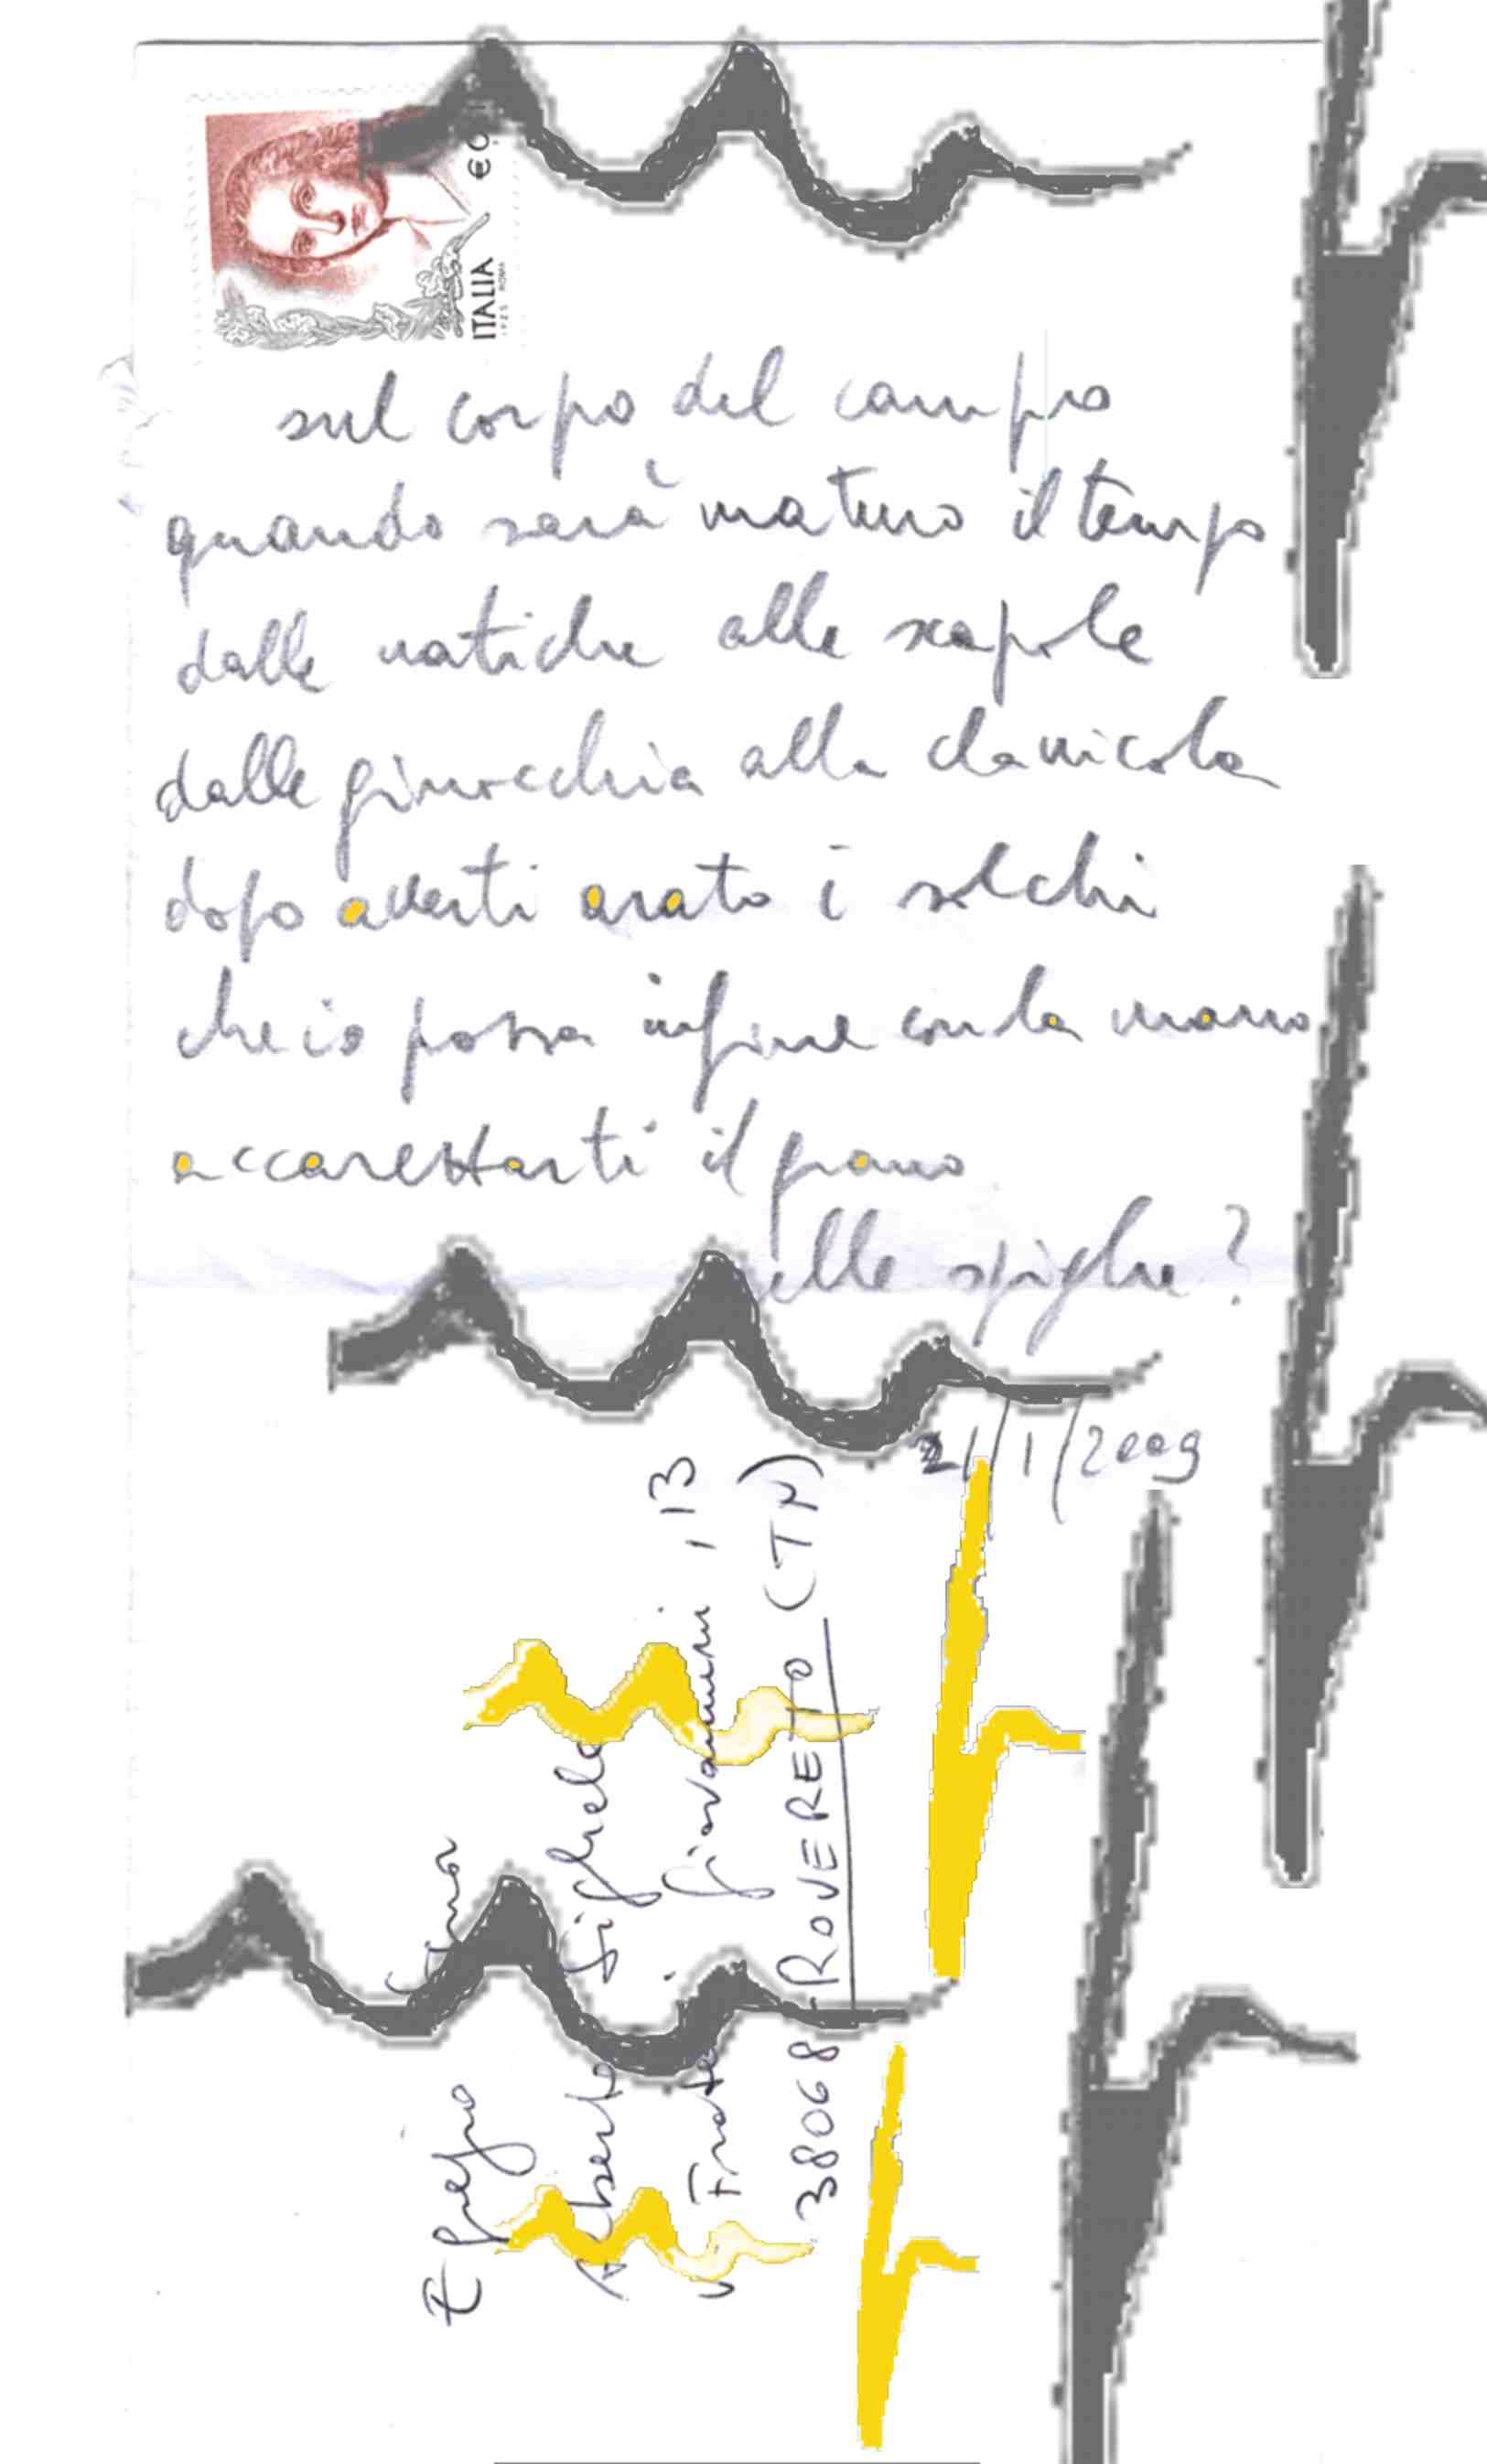 €0,
ITALIA
I.P.Z.S. ROMA
sul corpo del campo
quando sarà maturo il tempo
dalle natiche alle scapole
dalle ginocchia alla clavicola
dopo averti arato i solchi
che io possa infine con la mano
accarezzarti il grano
alle spighe?
21/1/2009
Egregio
Alberto Sighele
v. Frat Giovanni, 13
38068 ROVERETO (TN)